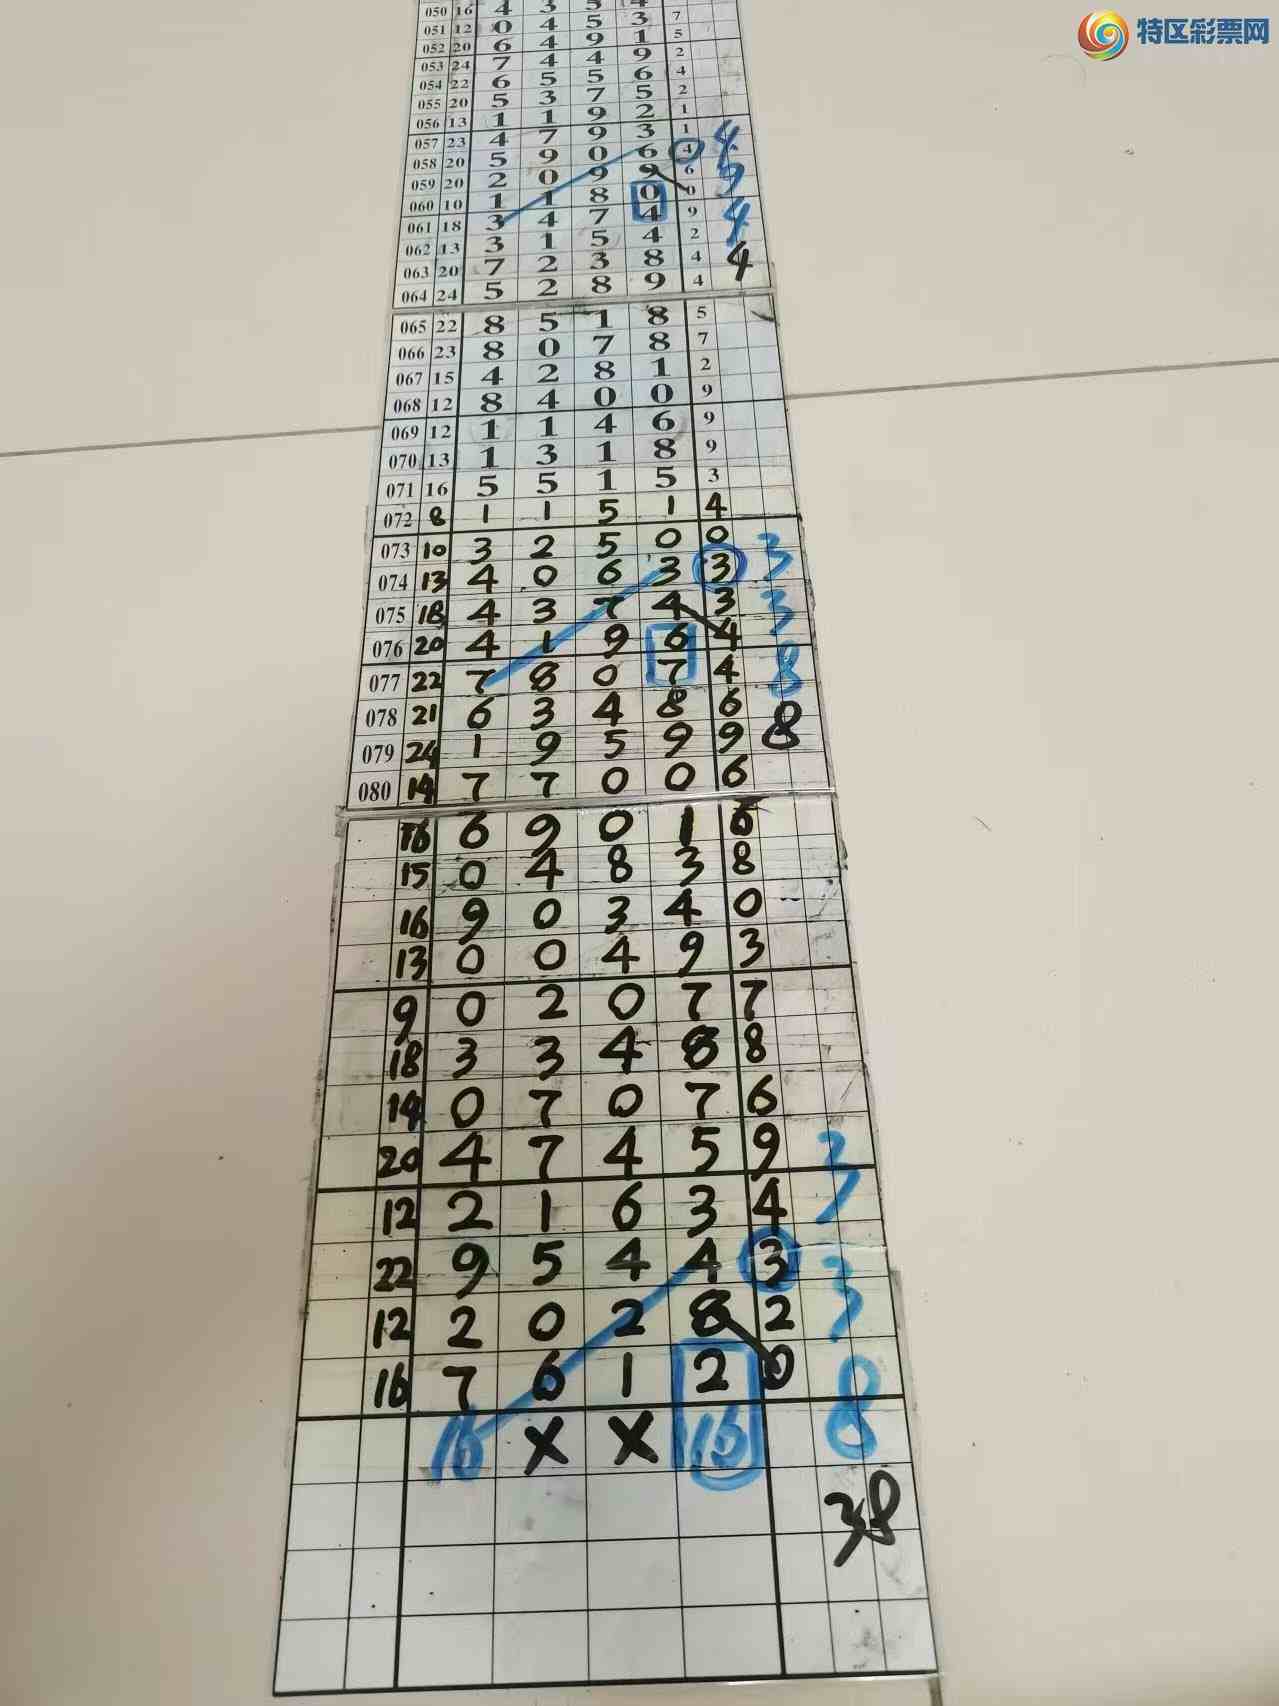 特区彩票网
050 16 4 3 5 4
051 12 0 4 5 3 7
052 20 6 4 9 1 5
053 24 7 4 4 9 2
054 22 6 5 5 6 4
055 20 5 3 7 5 2
056 13 1 1 9 2 1
057 23 4 7 9 3 1 4
058 20 5 9 0 6 4
059 20 2 0 9 9 6 9
060 10 1 1 8 0 0
061 18 3 4 7 4 9 4
062 13 3 1 5 4 2
063 20 7 2 3 8 4 4
064 24 5 2 8 9 4
065 22 8 5 1 8 5
066 23 8 0 7 8 7
067 15 4 2 8 1 2
068 12 8 4 0 0 9
069 12 1 1 4 6 9
070 13 1 3 1 8 9
071 16 5 5 1 5 3
072 8 1 1 5 1 4
073 10 3 2 5 0 0 3
074 13 4 0 6 3 3
075 18 4 3 7 4 3 3
076 20 4 1 9 6 4
077 22 7 8 0 7 4 8
078 21 6 3 4 8 6
079 24 1 9 5 9 9 8
080 14 7 7 0 0 6
16 6 9 0 1 6
15 0 4 8 3 8
16 9 0 3 4 0
13 0 0 4 9 3
9 0 2 0 7 7
18 3 3 4 8 8
14 0 7 0 7 6
20 4 7 4 5 9 3
12 2 1 6 3 4
22 9 5 4 4 3 3
12 2 0 2 8 2
16 7 6 1 2 0 8
16 X X 16 8
38